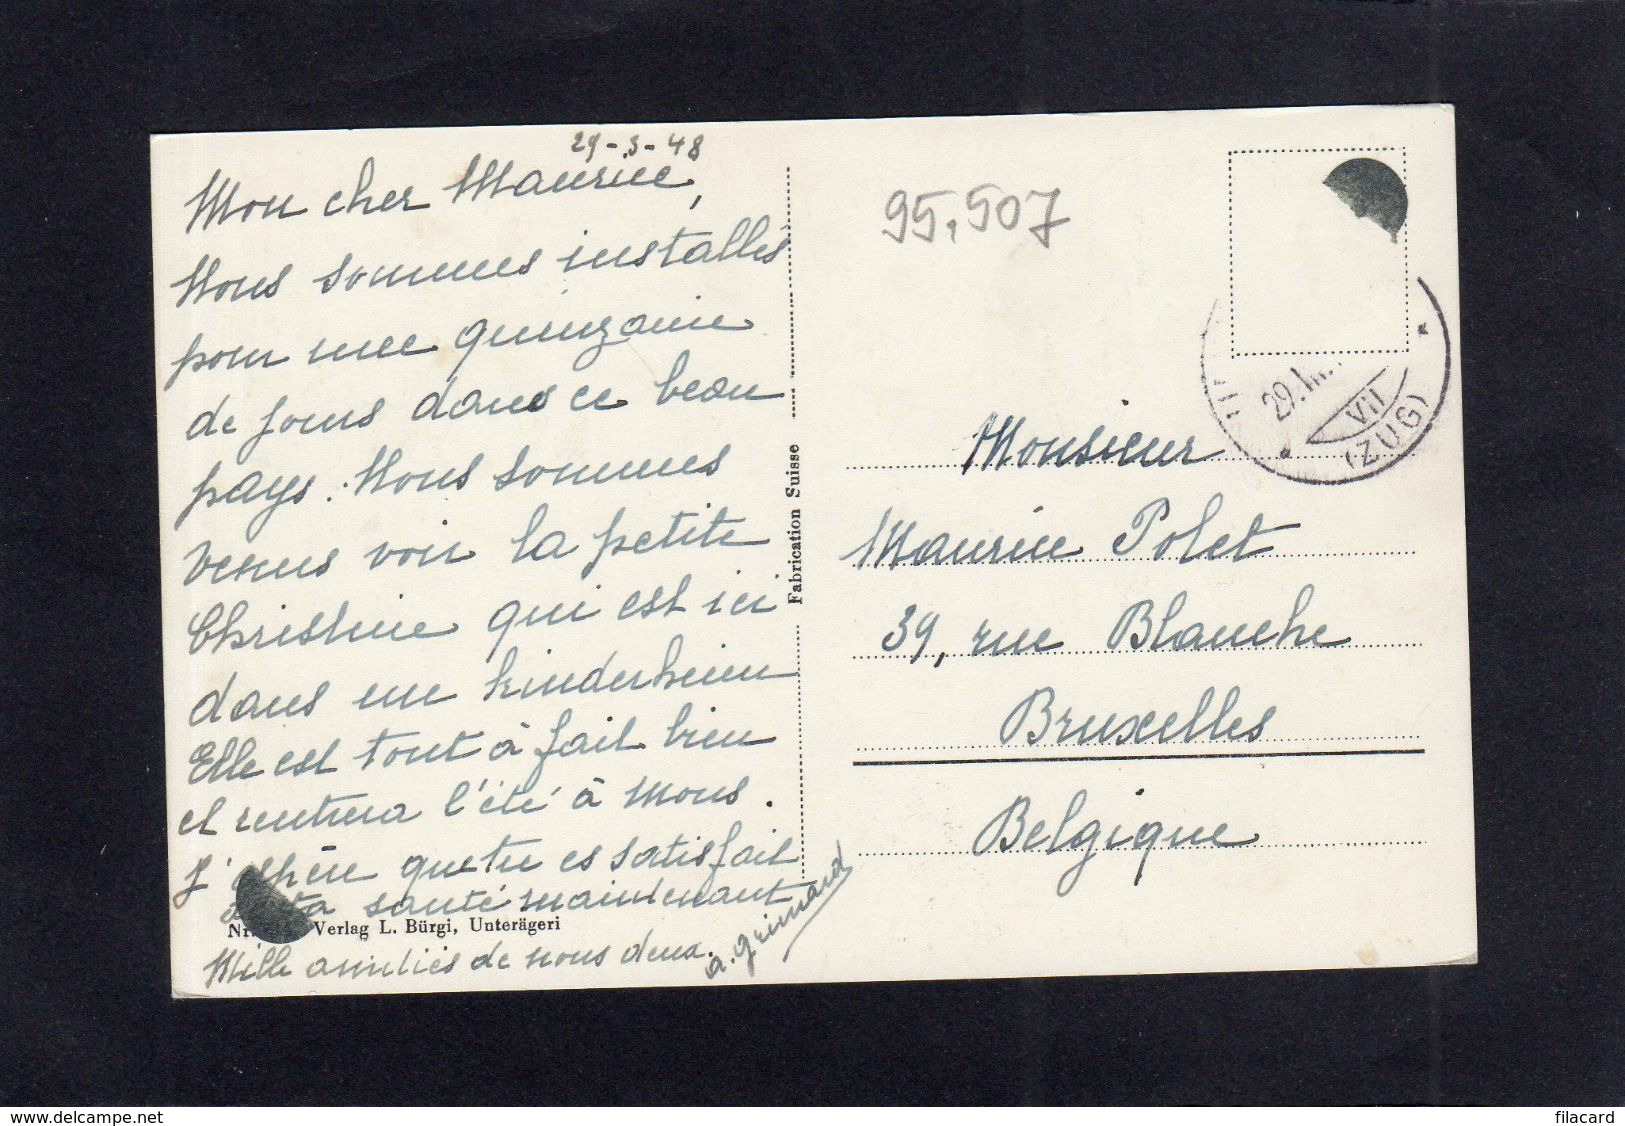 29-3-48
Mon cher Maurice,
Nous sommes installés
pour une quinzaine
de jours dans ce beau
pays. Nous sommes
venus voir la petite
Christine qui est ici
dans un kinderheim
Elle est tout à fait bien
et rentrera l'été à Mons.
J'espère que tu es satisfait
de ta santé maintenant
Verlag L. Bürgi, Unterägeri
Mille amitiés de nous deux.
a. Grimard
Fabrication Suisse
95,507
29.III.
VII
(ZUG)
Monsieur
Maurice Polet
39, rue Blanche
Bruxelles
Belgique
www.delcampe.net
filacard